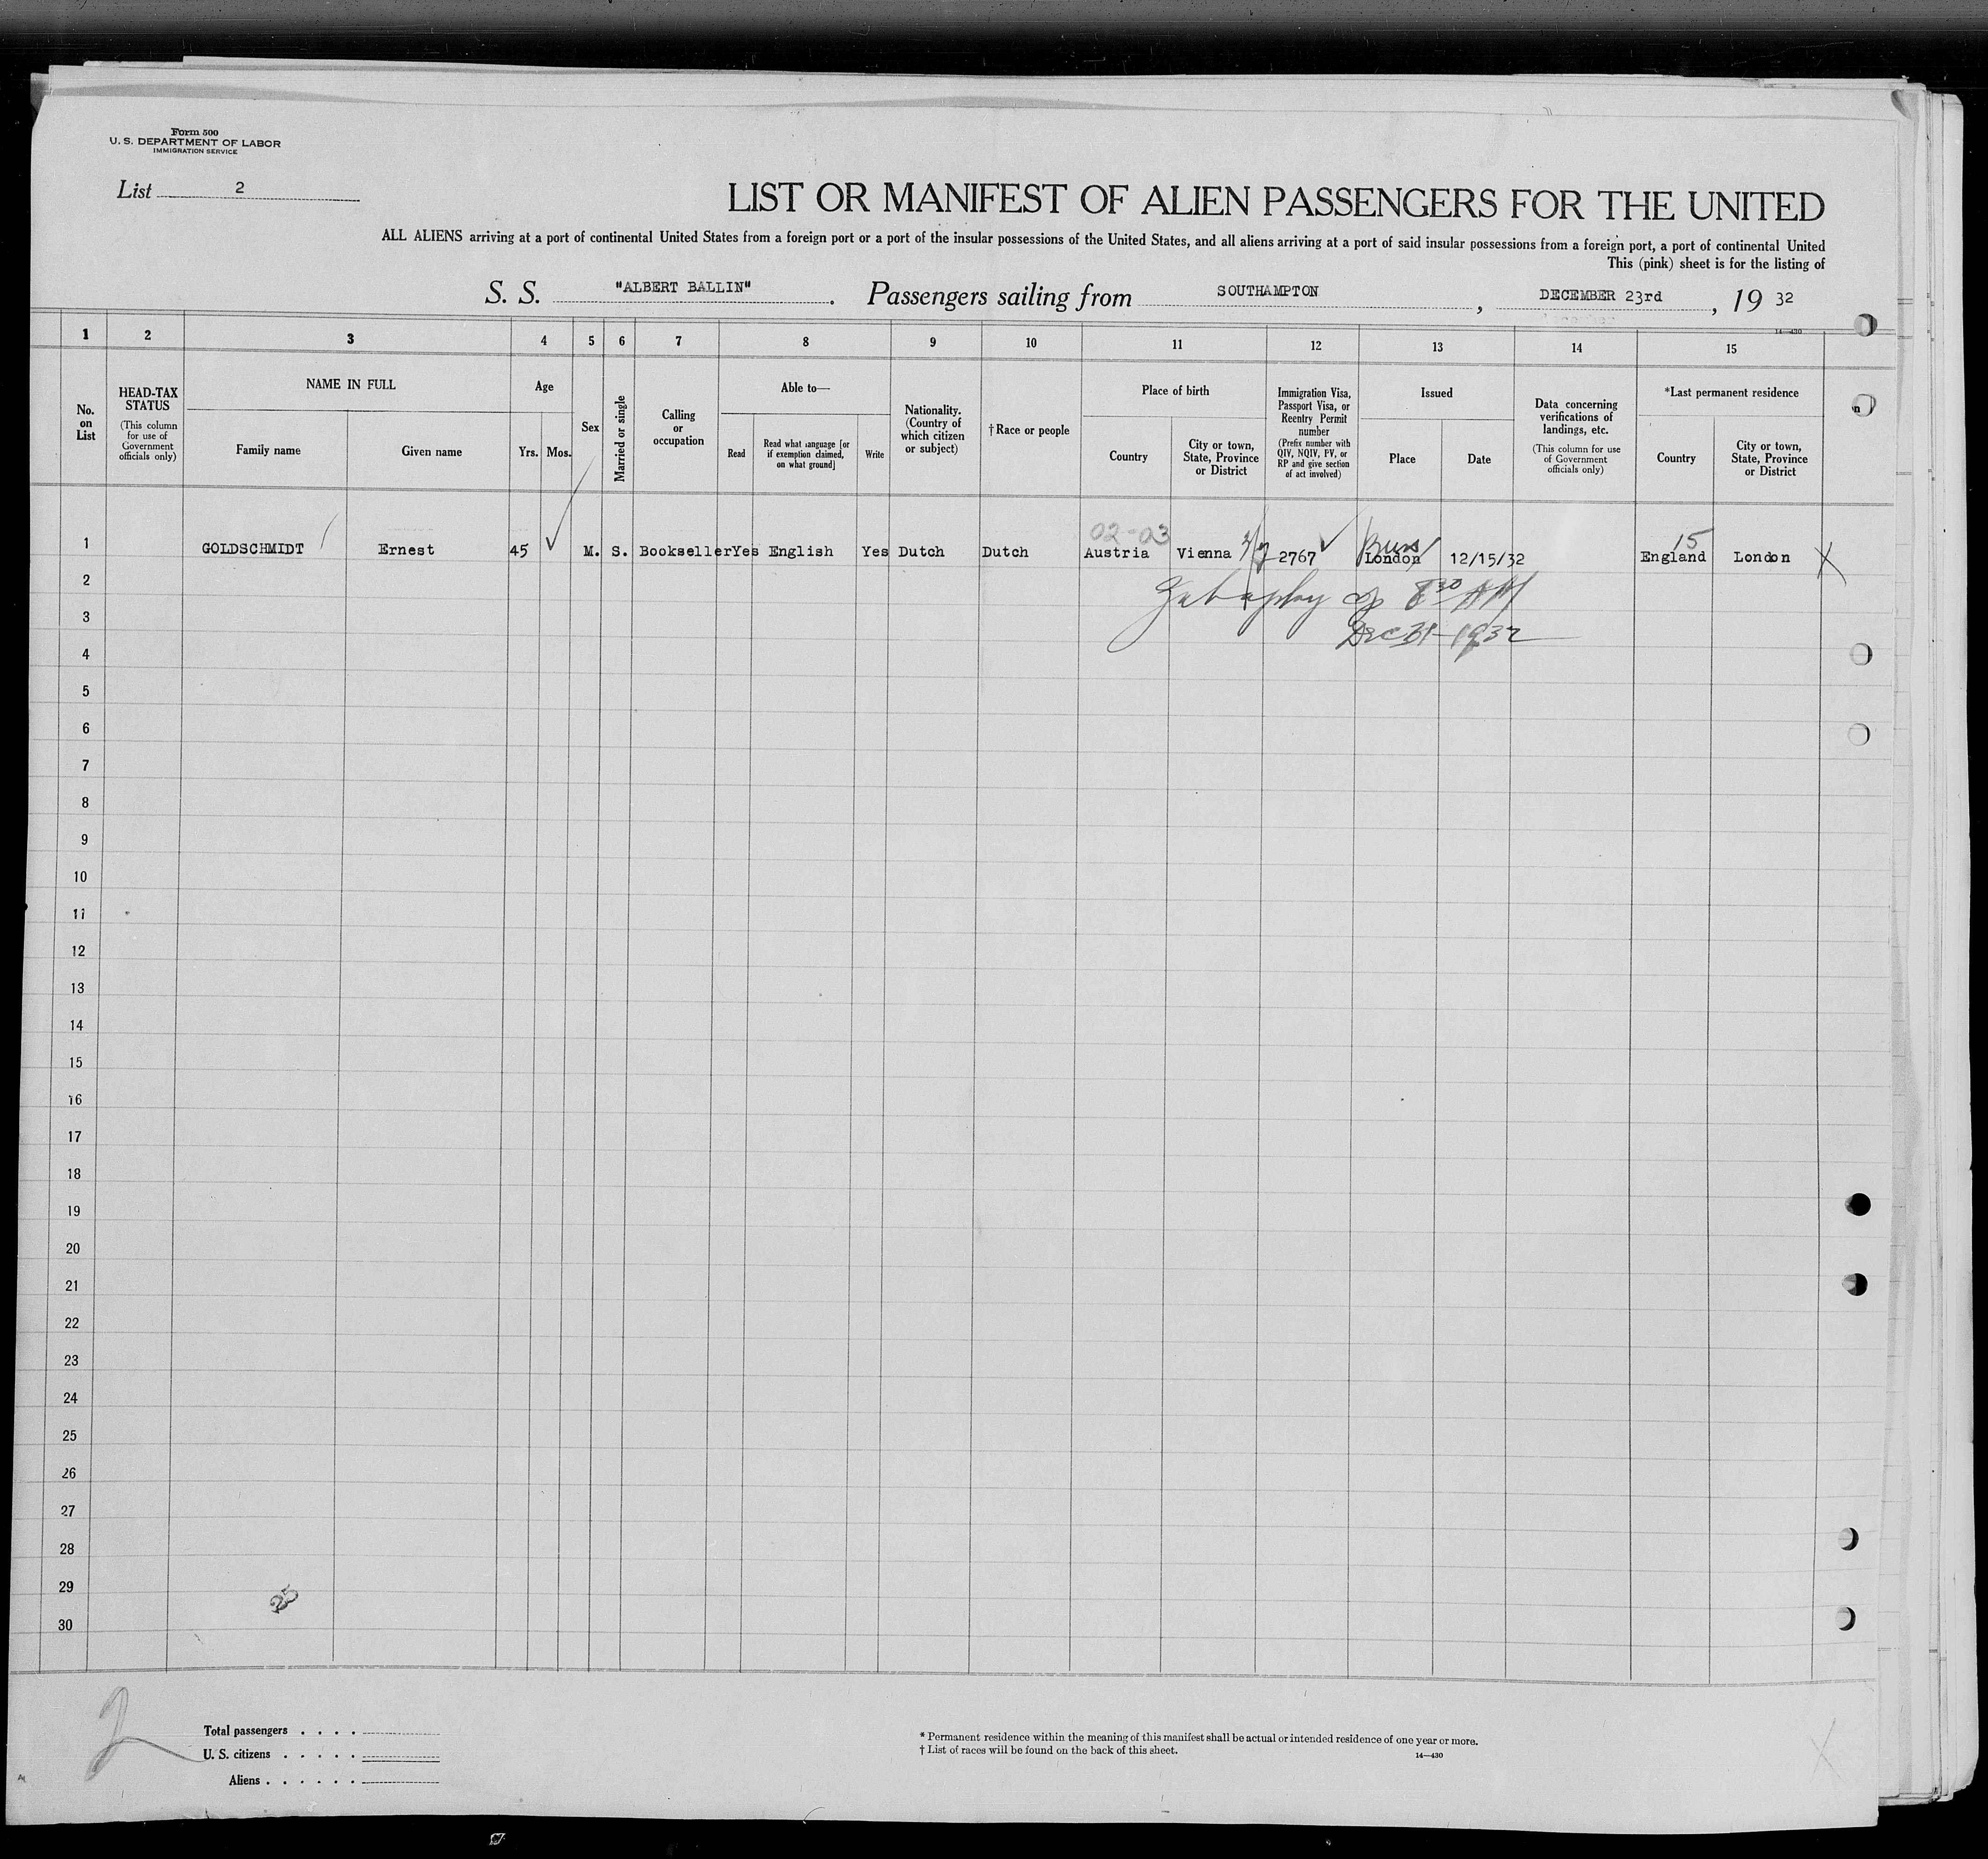 Form 500
U. S. DEPARTMENT OF LABOR
IMMIGRATION SERVICE
List 2
LIST OR MANIFEST OF ALIEN PASSENGERS FOR THE UNITED
ALL ALIENS arriving at a port of continental United States from a foreign port or a port of the insular possessions of the United States, and all aliens arriving at a port of said insular possessions from a foreign port, a port of continental United
This (pink) sheet is for the listing of
S. S. "ALBERT BALLIN". Passengers sailing from SOUTHAMPTON, DECEMBER 23rd, 19 32
14—430
1 2 3 4 5 6 7 8 9 10 11 12 13 14 15
No. on List
HEAD-TAX STATUS
(This column for use of Government officials only)
NAME IN FULL
Family name
Given name
Age
Yrs. Mos.
Sex
Married or single
Calling or occupation
Able to—
Read
Read what language [or if exemption claimed, on what ground]
Write
Nationality. (Country of which citizen or subject)
†Race or people
Place of birth
Country
City or town, State, Province or District
Immigration Visa, Passport Visa, or Reentry Permit number
(Prefix number with QIV, NQIV, PV, or RP and give section of act involved)
Issued
Place
Date
Data concerning verifications of landings, etc.
(This column for use of Government officials only)
*Last permanent residence
Country
City or town, State, Province or District
02-03
15
1 GOLDSCHMIDT Ernest 45 M. S. Bookseller Yes English Yes Dutch Dutch Austria Vienna 2767 London 12/15/32 England London X
8 30 AM
Dec 31-1932
2
3
4
5
6
7
8
9
10
11
12
13
14
15
16
17
18
19
20
21
22
23
24
25
26
27
28
29
30
2
Total passengers . . . .
U. S. citizens . . . . .
Aliens . . . . . .
* Permanent residence within the meaning of this manifest shall be actual or intended residence of one year or more.
† List of races will be found on the back of this sheet.
14—430